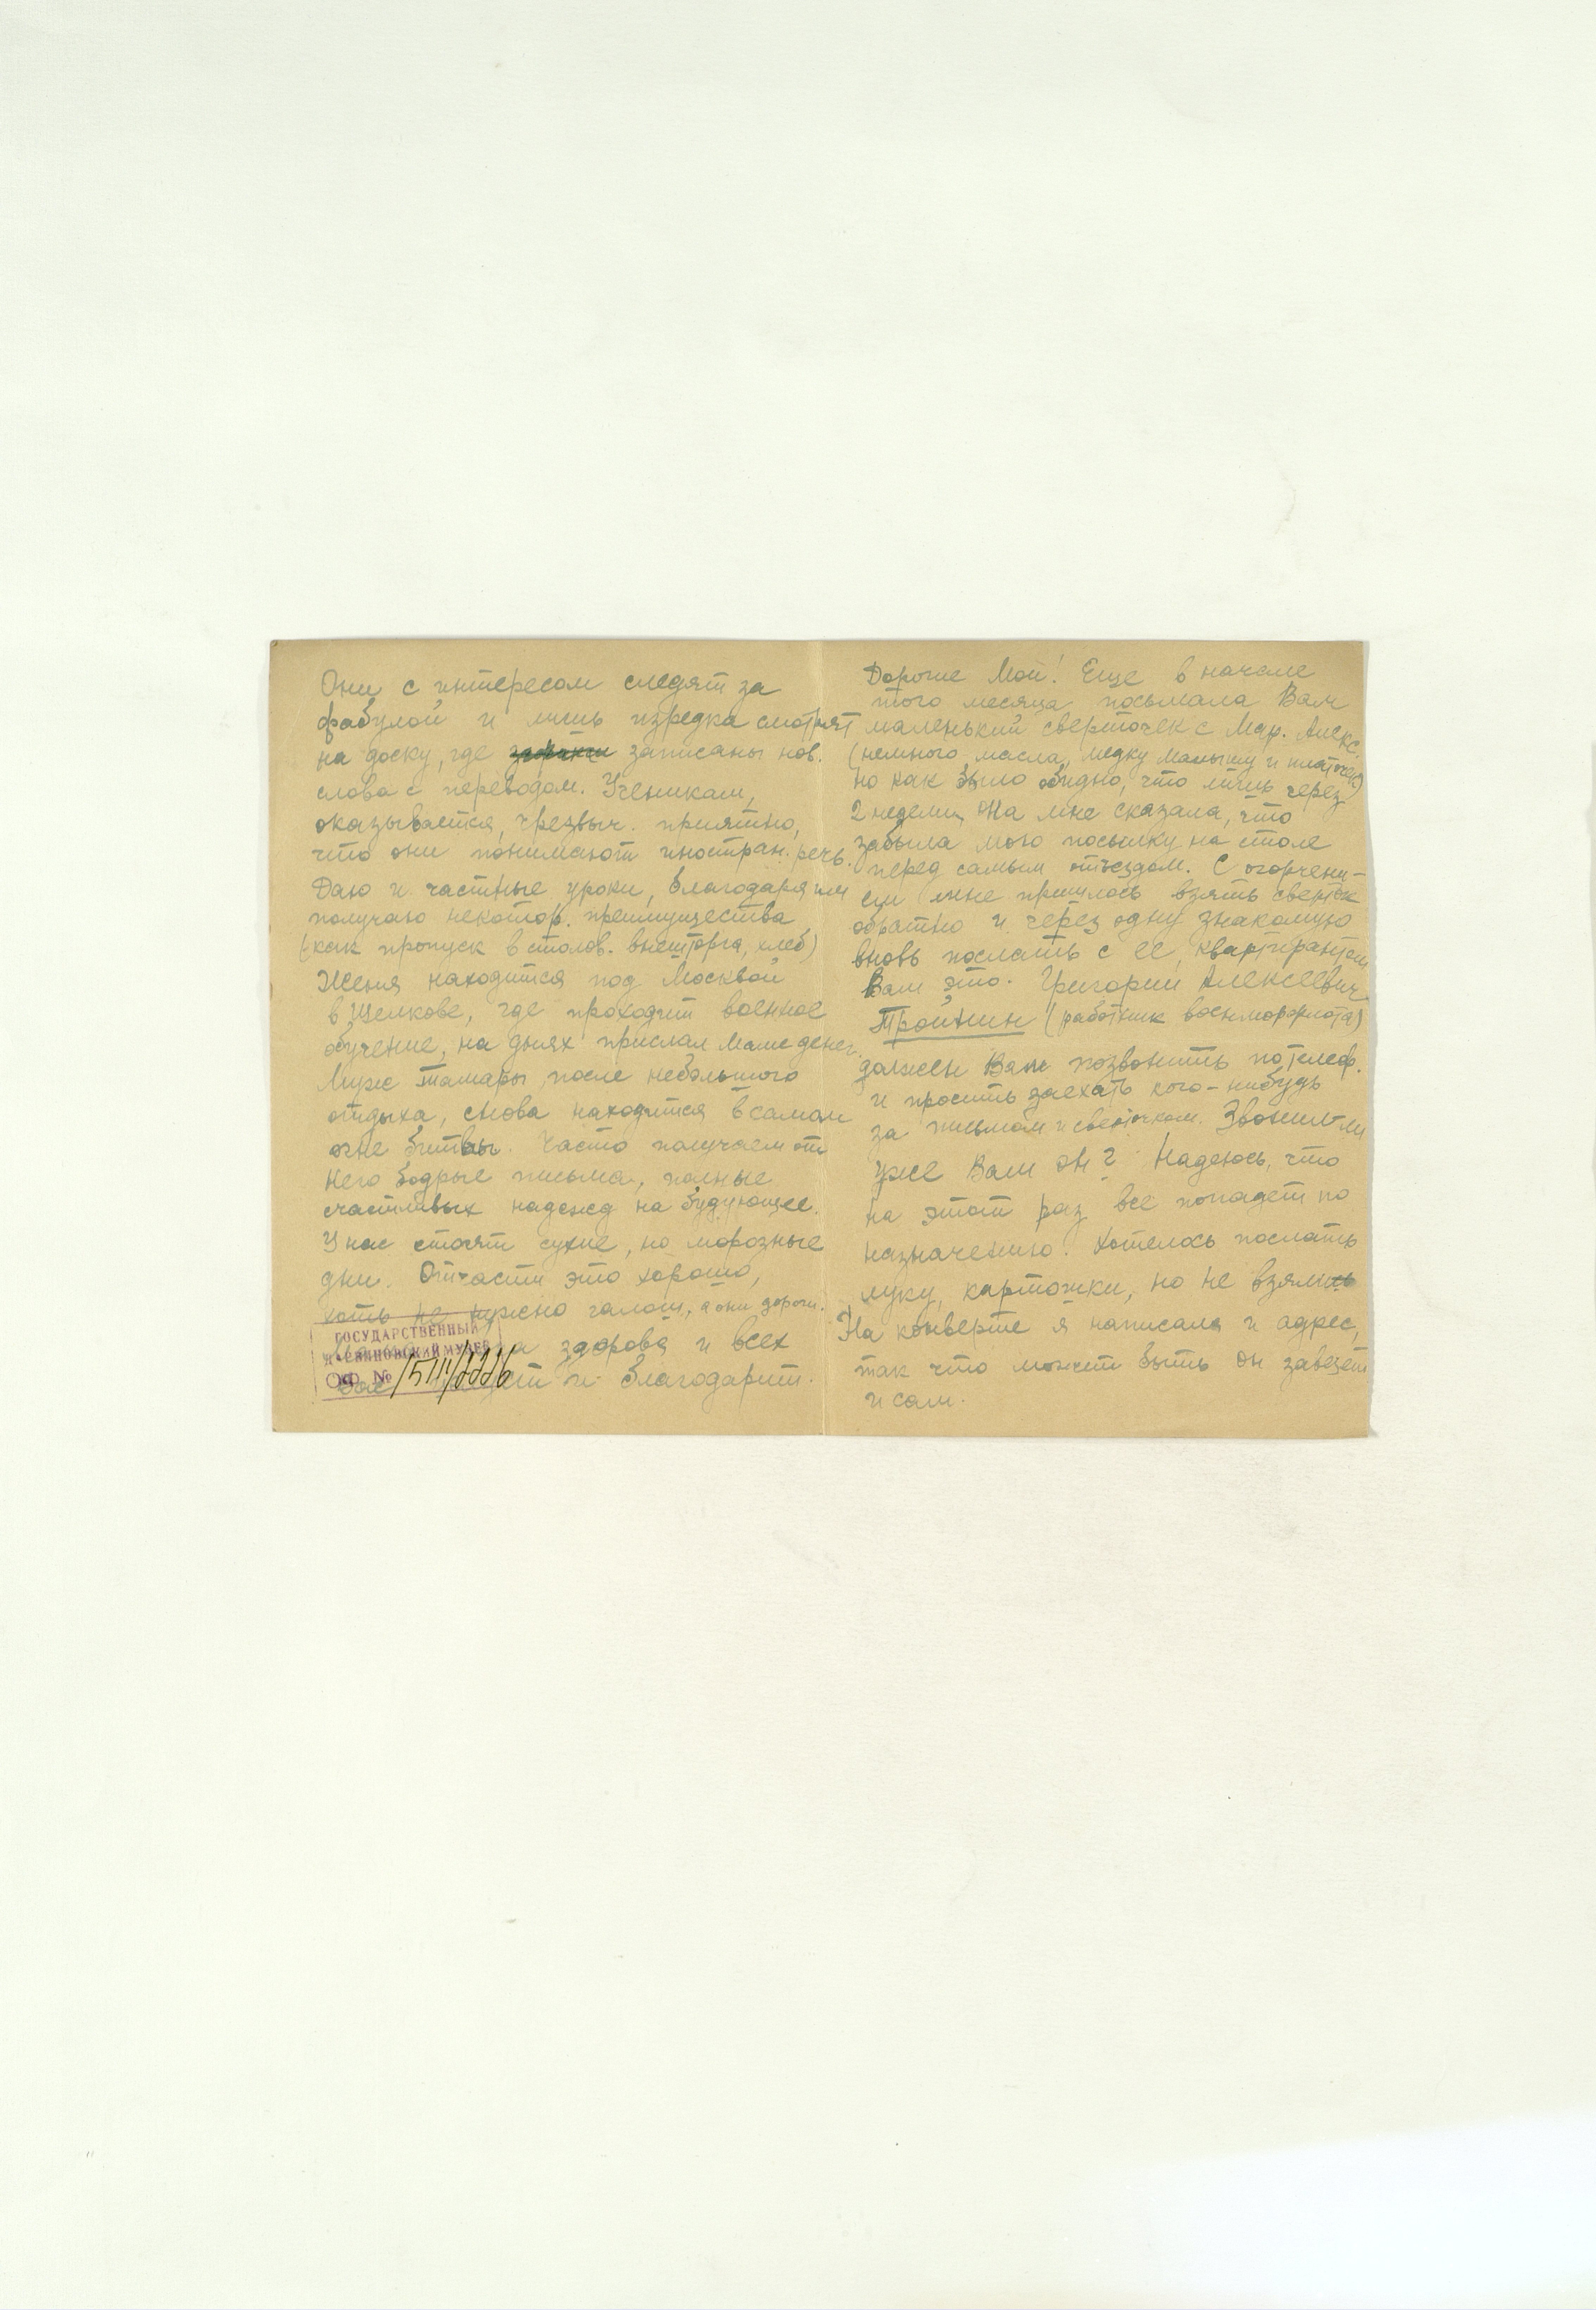 Дорогие Мои! Еще в начале
того месяца посылала Вам
маленький сверточек с Мар. Алекс.
(немного масла, медку Малышу и платочек)
но как было обидно, что лишь через
2 недели она мне сказала, что
забыла мою посылку на столе
перед самым отъездом. С огорчени-
ем мне пришлось взять сверток
обратно и через одну знакомую
вновь послать с её квартирантом
Вам это. Григорий Алексеевич
Тройнин (работник военморфлота)
должен Вам позвонить по телеф.
и просить заехать кого-нибудь
за письмом и сверточком. Звонил-ли
уже Вам он? Надеюсь, что
на этот раз все попадет по
назначению. Хотелось послать
муку, картошки, но не взяли
На конверте я написала и адрес,
так что может быть он завезет
и сам.
Они с интересом следят за
фабулой и лишь изредка смотрят
на доску, где записаны нов.
слова с переводом. Ученикам,
оказывается, чрезвыч. приятно,
что они понимают иностран. речь.
Даю и частные уроки, благодаря им
получаю некотор. преимущества
(как пропуск в столов. внешторга, хлеб)
Женя находится под Москвой
в Щелкове, где проходит военное
обучение, на днях прислал маме денег.
Муж Тамары, после небольшого
отдыха, снова находится в самом
огне битвы. Часто получаем от
него бодрые письма, полные
счастливых надежд на будующее.
У нас стоят сухие, но морозные
дни. Отчасти это хорошо,
хоть не нужно галош, а они дороги.
здорова и всех
Вас и благодарит.
ГОСУДАРСТВЕННЫЙ
МУЗЕЙ
ОФ №